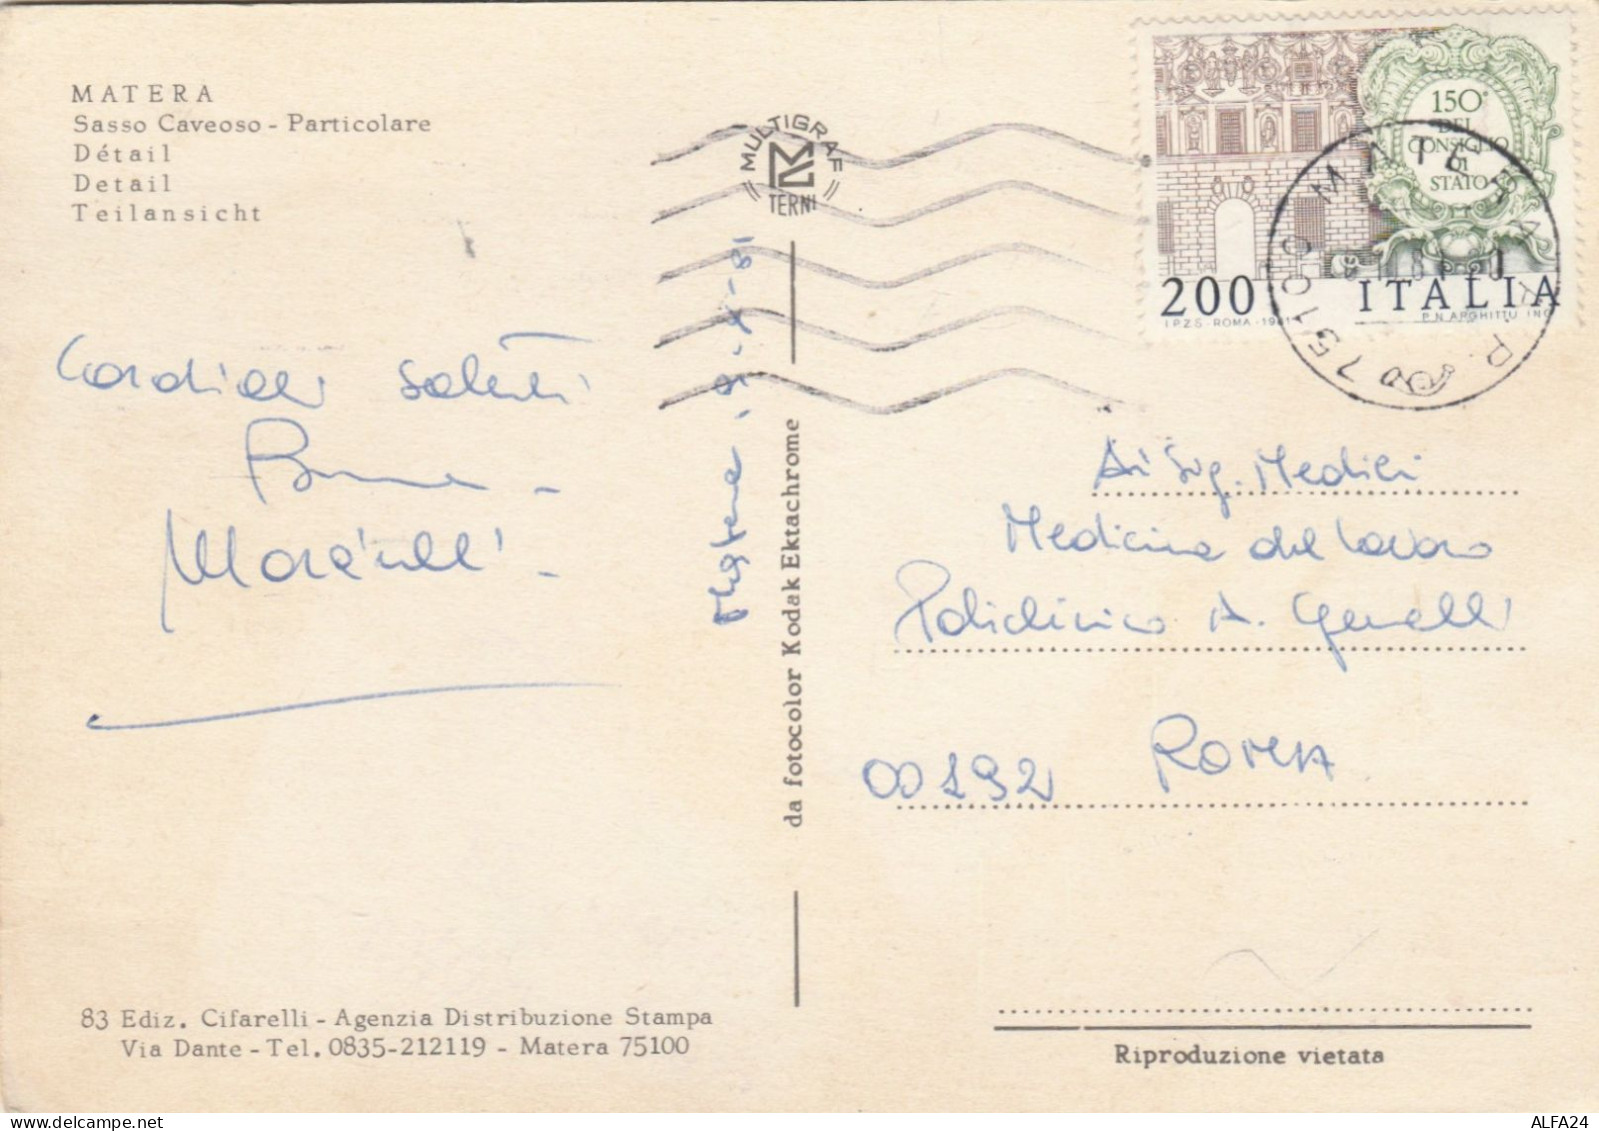 MATERA
Sasso Caveoso - Particolare
Détail
Detail
Teilansicht
MULTIGRAF
TERNI
150°
DEL
CONSIGLIO
DI
STATO
200 ITALIA
I.P.Z.S. - ROMA - 1981
P.N. ARGHITTU INC.
MATERA A.R.P. 75100
Cordiali saluti
Matera, 9-X-81
da fotocolor Kodak Ektachrome
Ai Sig. Medici
Medicina del Lavoro
Policlinico A. Gemelli
00192 ROMA
83 Ediz. Cifarelli - Agenzia Distribuzione Stampa
Via Dante - Tel. 0835-212119 - Matera 75100
Riproduzione vietata
ALFA24